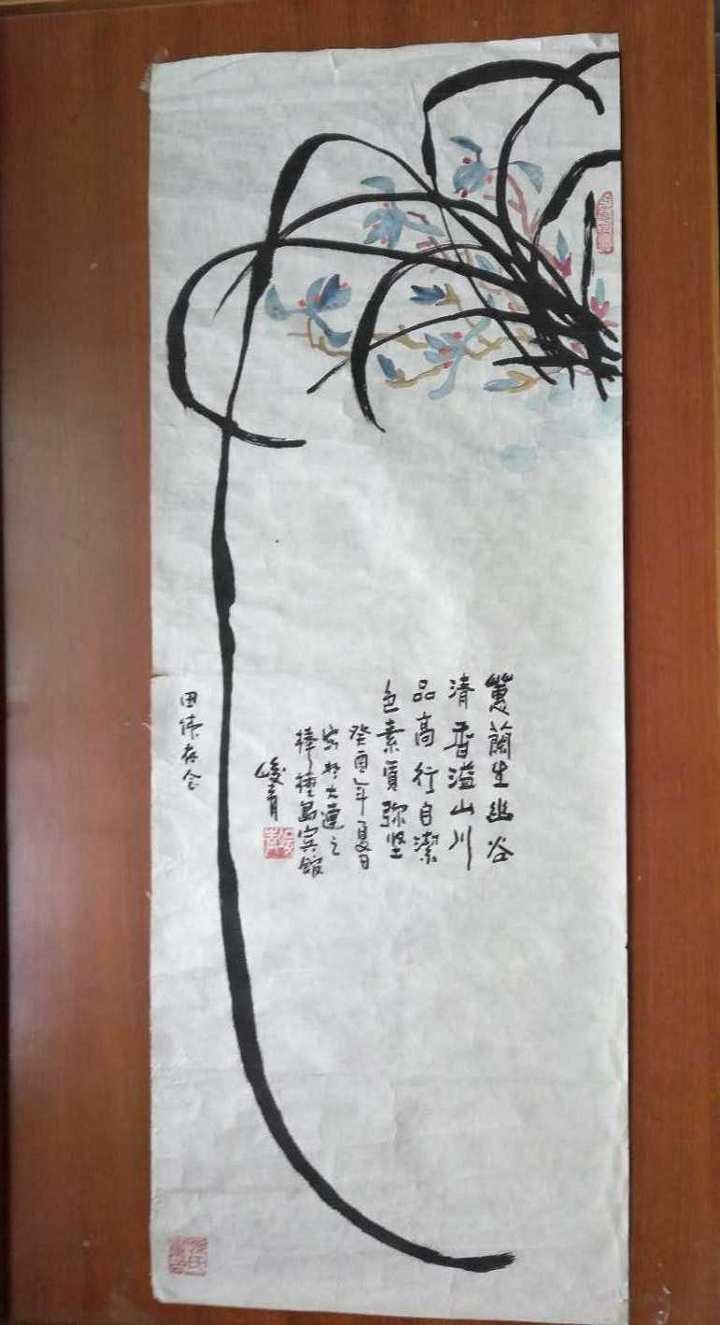 蕙蘭生幽谷
清香溢山川
品高行自潔
色素質弥坚
癸酉年夏日
寫於大連之
棒棰島宾館
峻青
田偉存念